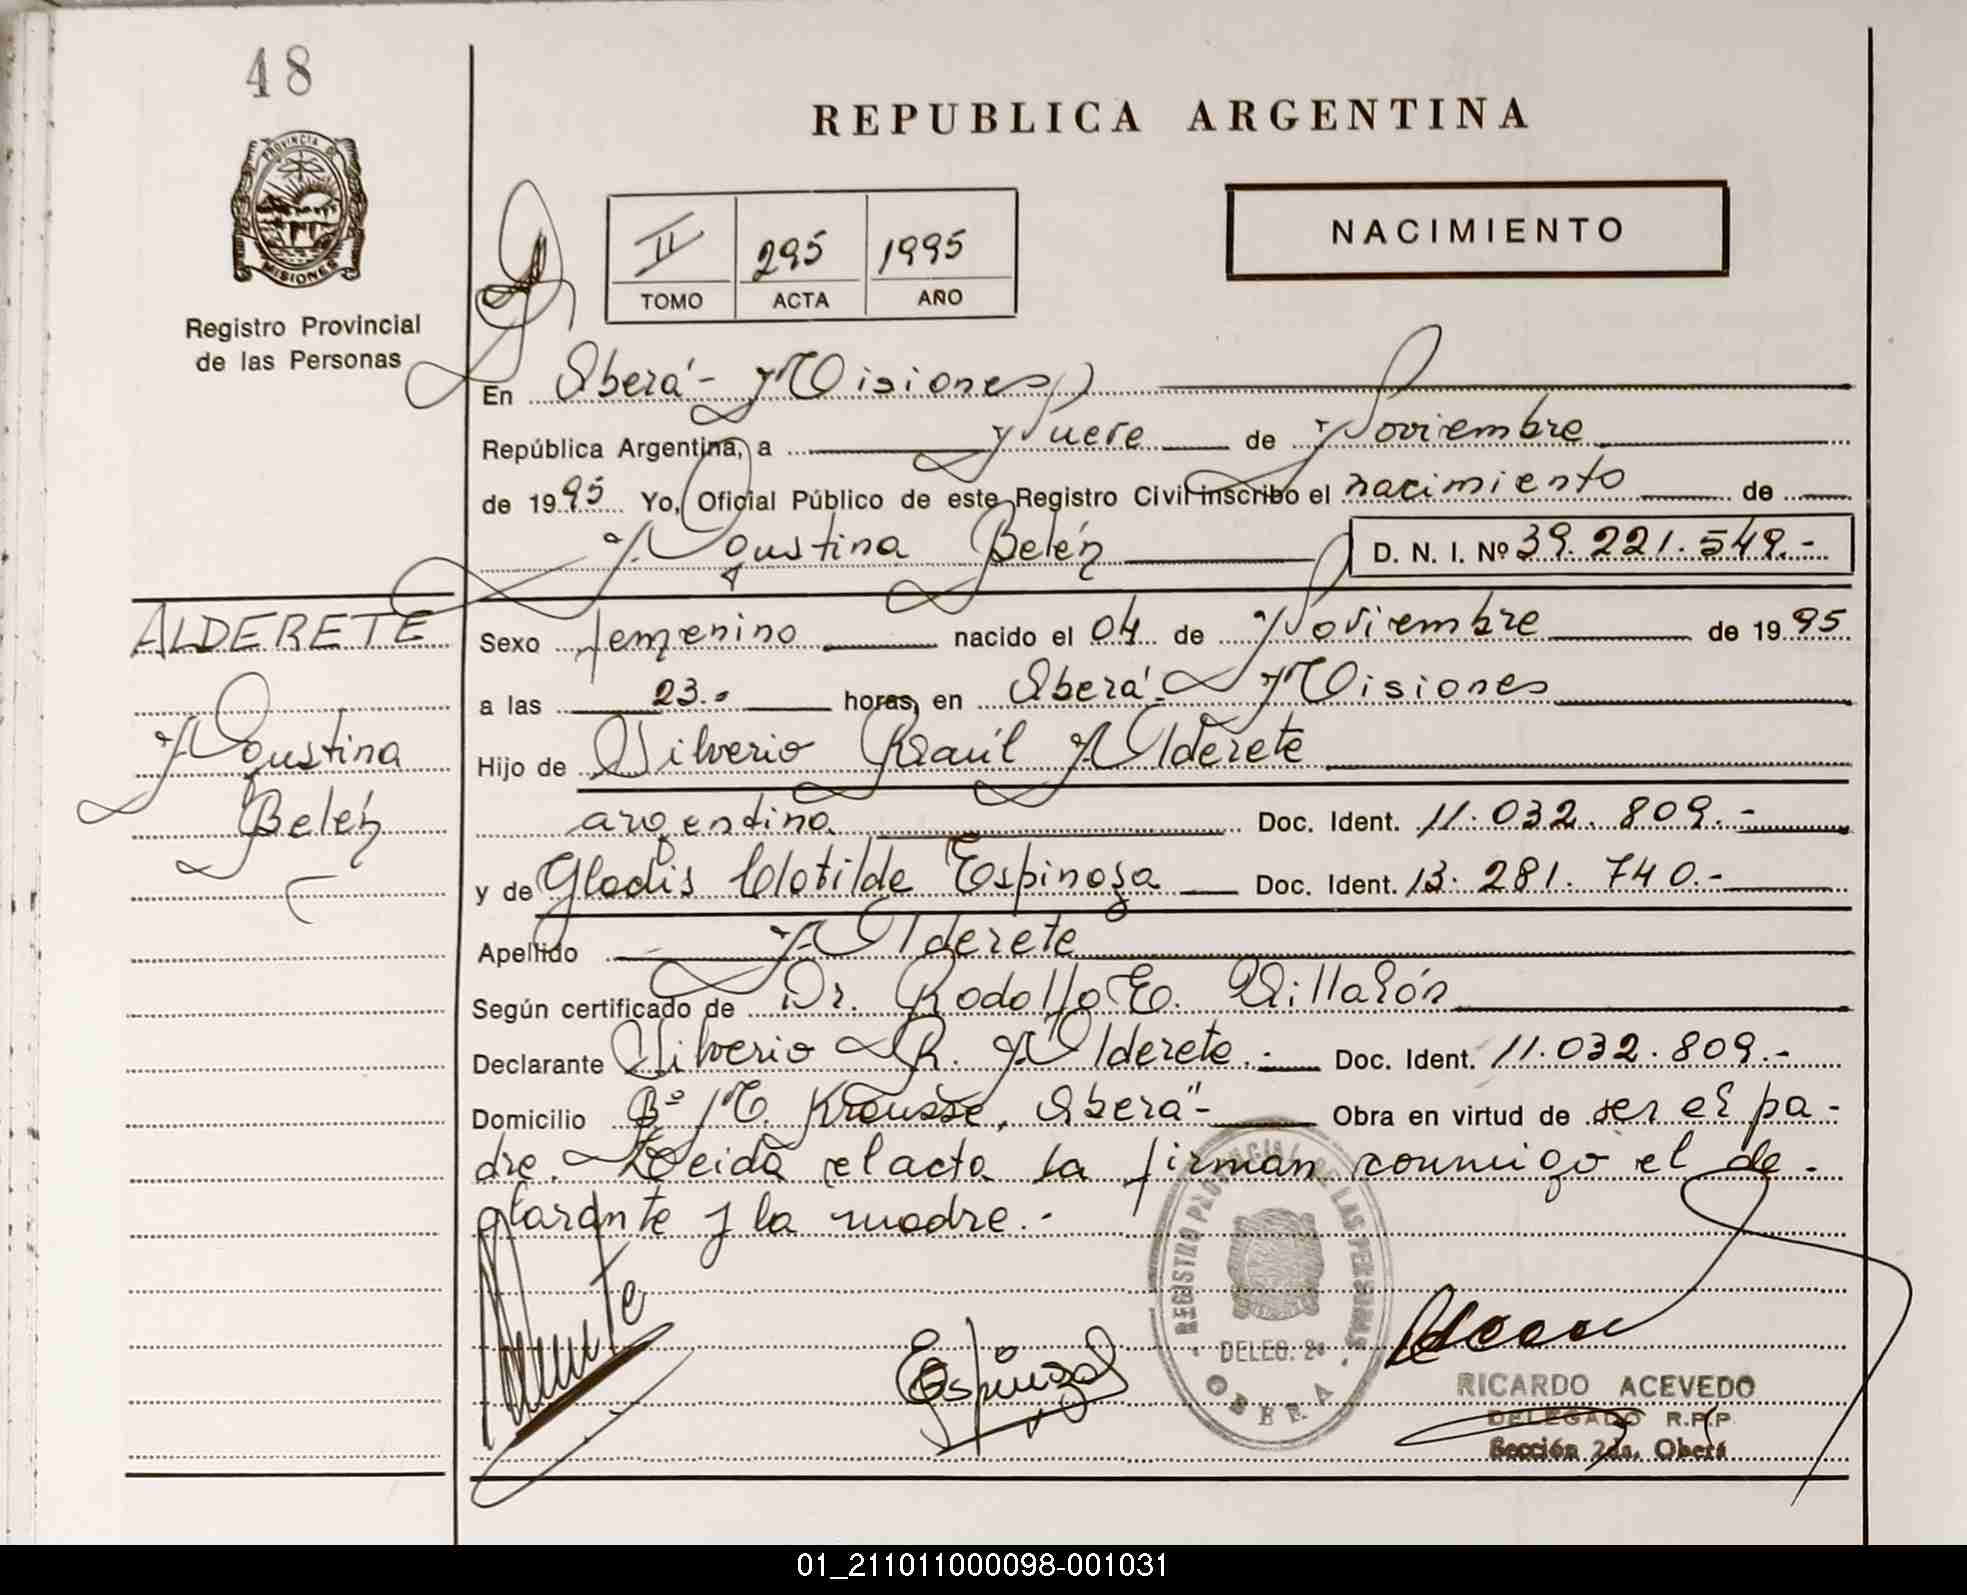 48
REPUBLICA ARGENTINA
PROVINCIA DE
MISIONES
II 295 1995
TOMO ACTA AÑO
NACIMIENTO
Registro Provincial
de las Personas
En Oberá - Misiones
República Argentina, a Nueve de Noviembre
de 1995 Yo, Oficial Público de este Registro Civil inscribo el nacimiento de
Agustina Belén D. N. I. Nº 39.221.549.-
ALDERETE
Agustina
Belén
Sexo femenino nacido el 04 de Noviembre de 1995
a las 23.- horas, en Oberá - Misiones
Hijo de Silverio Raúl Alderete
argentino Doc. Ident. 11.032.809.-
y de Gladis Clotilde Espinoza Doc. Ident. 13.281.740.-
Apellido Alderete
Según certificado de Dr. Rodolfo E. Villalón
Declarante Silverio R. Alderete.- Doc. Ident. 11.032.809.-
Domicilio Bº M. Krausse, Oberá - Obra en virtud de ser el pa-
dre. Leida el acta la firman conmigo el de-
clarante y la madre.-
REGISTRO PROVINCIAL DE LAS PERSONAS
DELEG. 2ª
OBERA
Espinoza
RICARDO ACEVEDO
DELEGADO R.P.P.
Sección 2da. Oberá
01_211011000098-001031